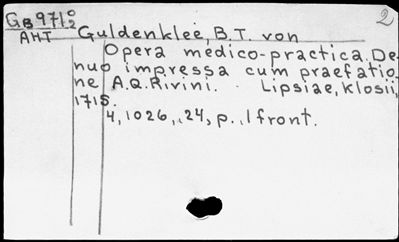 GB 971 0/2 2
AHT Guldenklee, B.T. von
Opera medico-practica. De-
nuo impressa cum praefatio-
ne A.Q. Rivini. Lipsiae, Klosii,
1715.
4, 1026, ,24, p., 1 front.